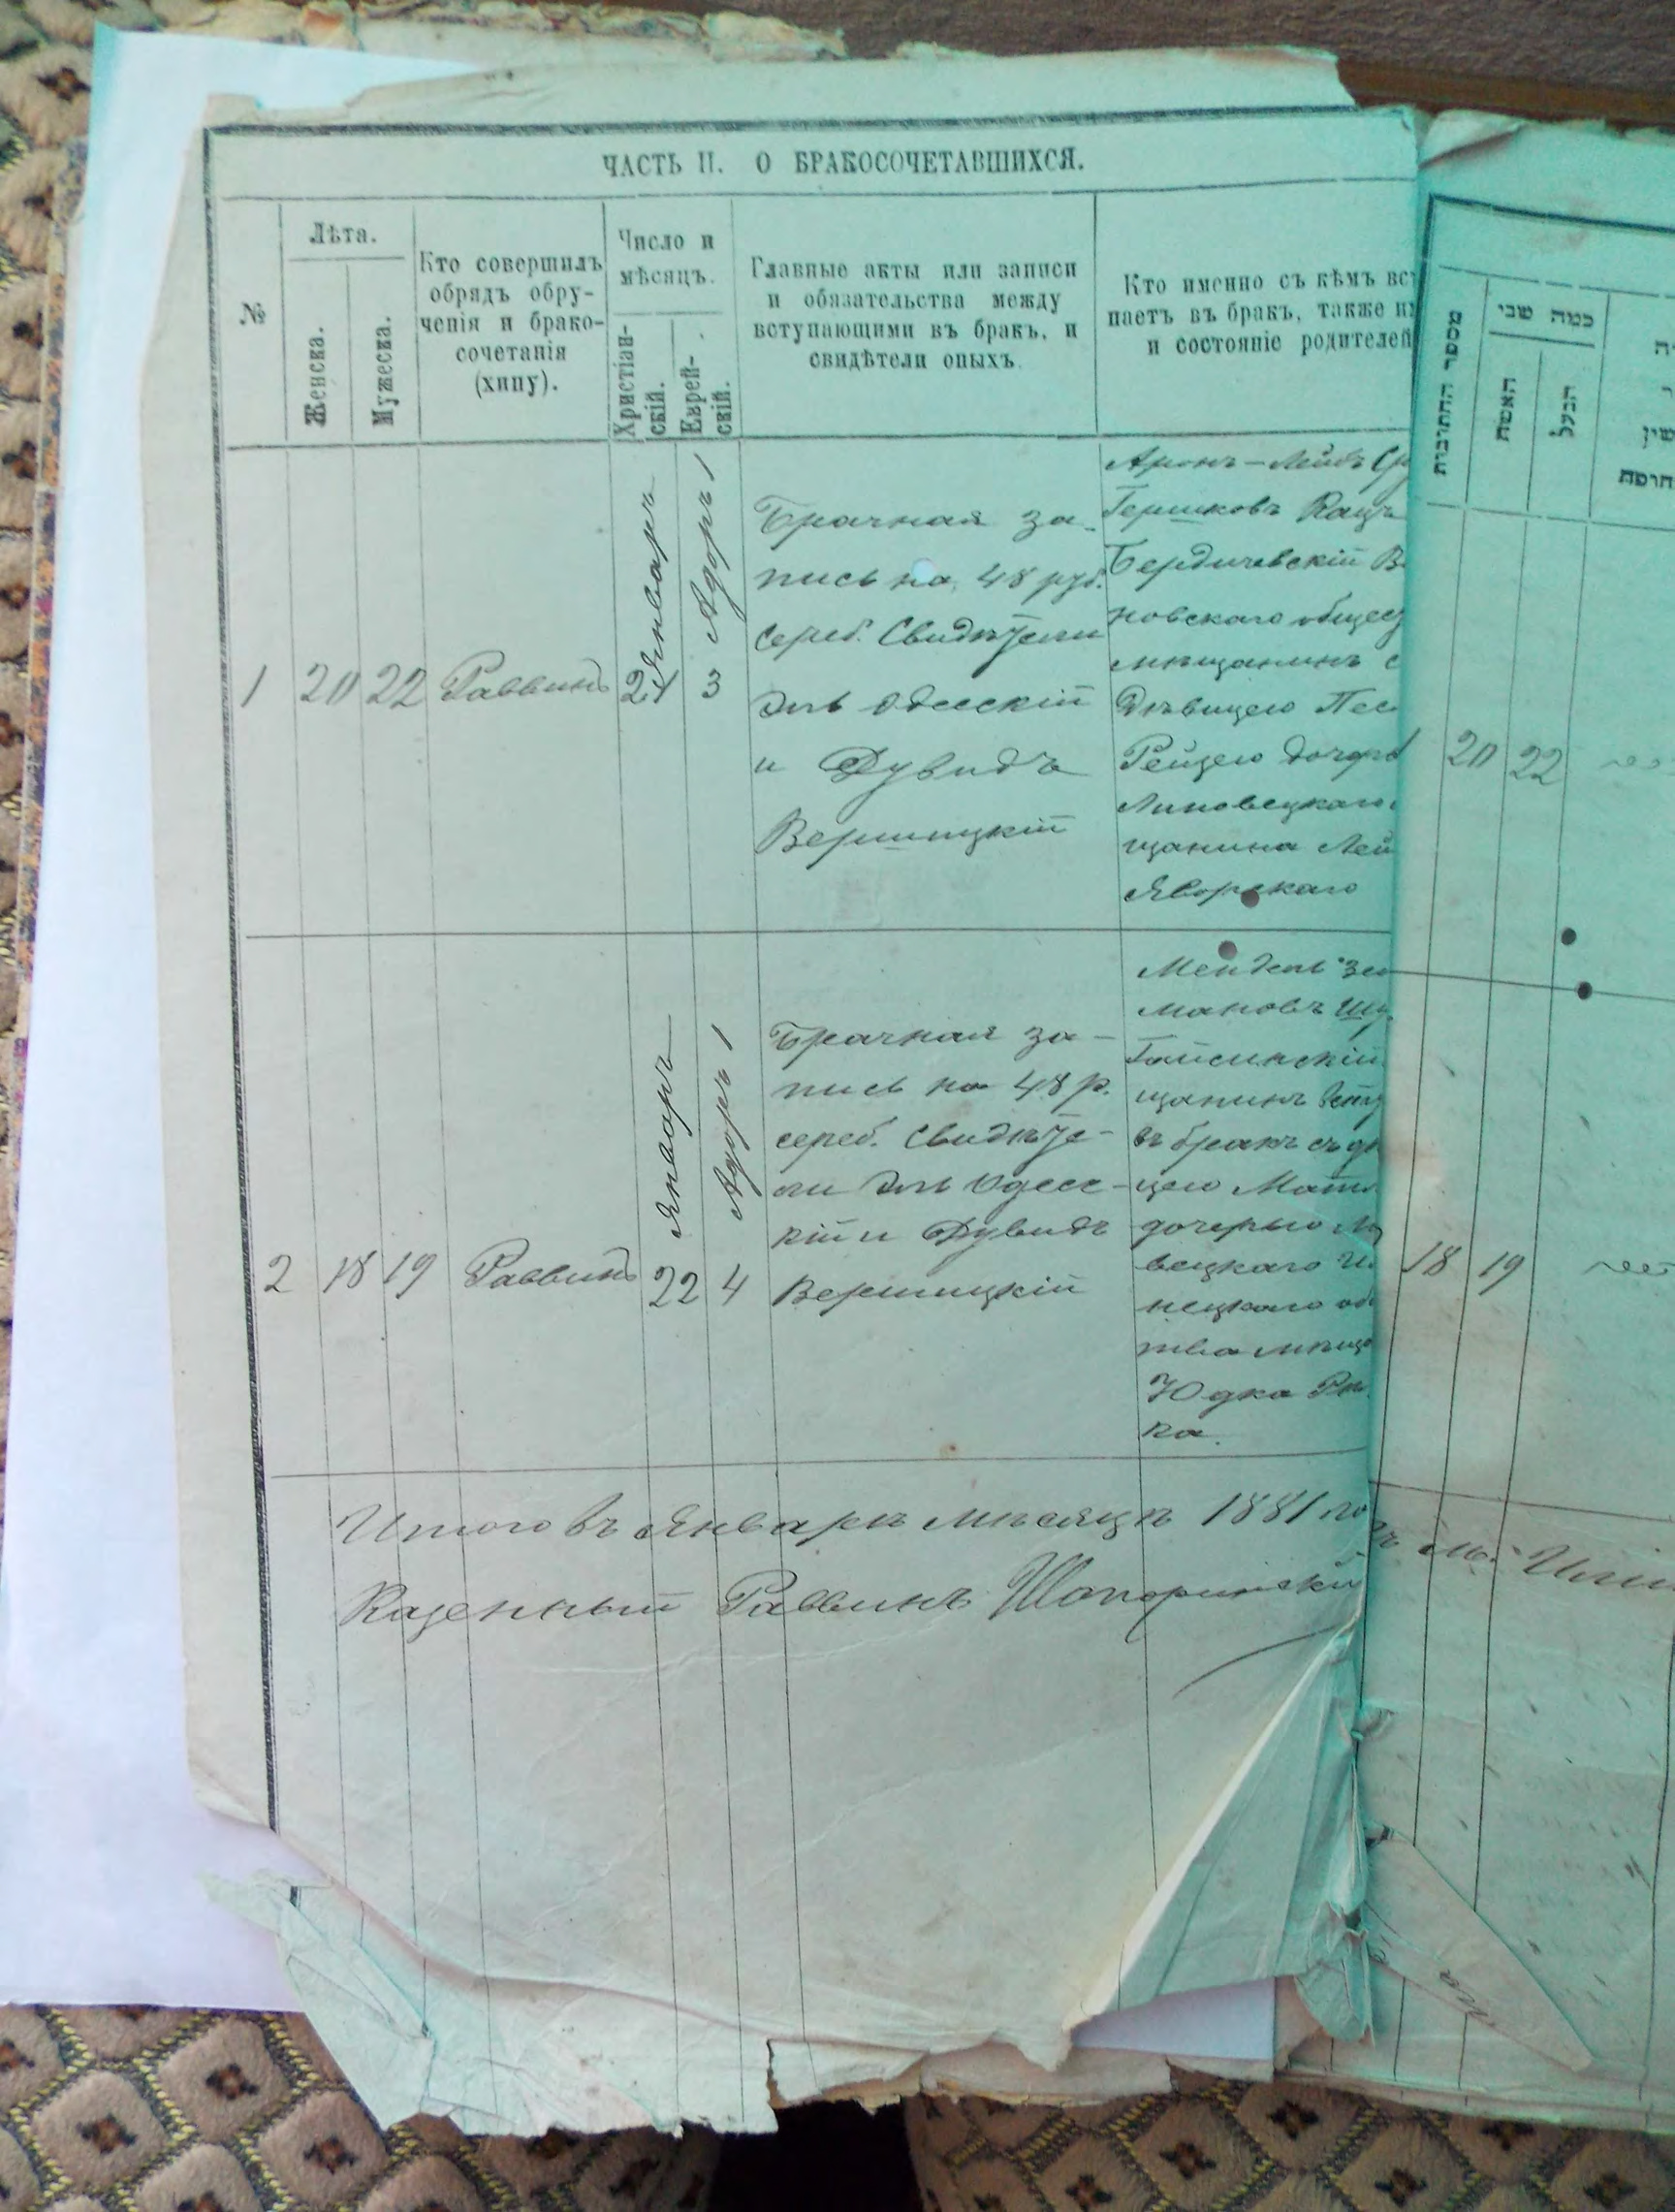 ЧАСТЬ II. О БРАКОСОЧЕТАВШИХСЯ.
№
Лѣта.
Женска.
Мужеска.
Кто совершилъ
обрядъ обру-
ченія и брако-
сочетанія
(хипу).
Число и
мѣсяцъ.
Христіан-
скій.
Еврей-
скій.
Главные акты или записи
и обязательства между
вступающими въ бракъ, и
свидѣтели оныхъ.
Кто именно съ кѣмъ вст
паетъ въ бракъ, также и
и состояніе родителей
1
20
22
Раввинъ
Январь
Адоръ 1
3
Брачная за-
пись на 48 руб.
сереб. Свидѣтели
Эль Одесскій
и Дувидъ
Вершицкій
Аронъ-Лейбъ
Гершковъ Кацъ
Бердичевскій
новскаго общес
мѣщанинъ с
Дѣвицею Пес
Рейзею дочерью
Липовецкаго
щанина Лей
Яворскаго
2
18
19
Раввинъ
Январь
22
Адоръ 1
4
Брачная за-
пись на 48 р.
сереб. Свидѣте-
ли Эль Одесс-
кій и Дувидъ
Вершицкій
Мендель Зел
мановъ
Гайсинскій
щанинъ всту
въ бракъ съ дѣ
цею
дочерью
вецкаго
нецкаго об
тва мѣща
Юдка
ка.
Итого въ Январѣ мѣсяцѣ 1881 го
Казенный Раввинъ
מספר החתונות
כמה שני
האשה
הבעל
20
22
18
19